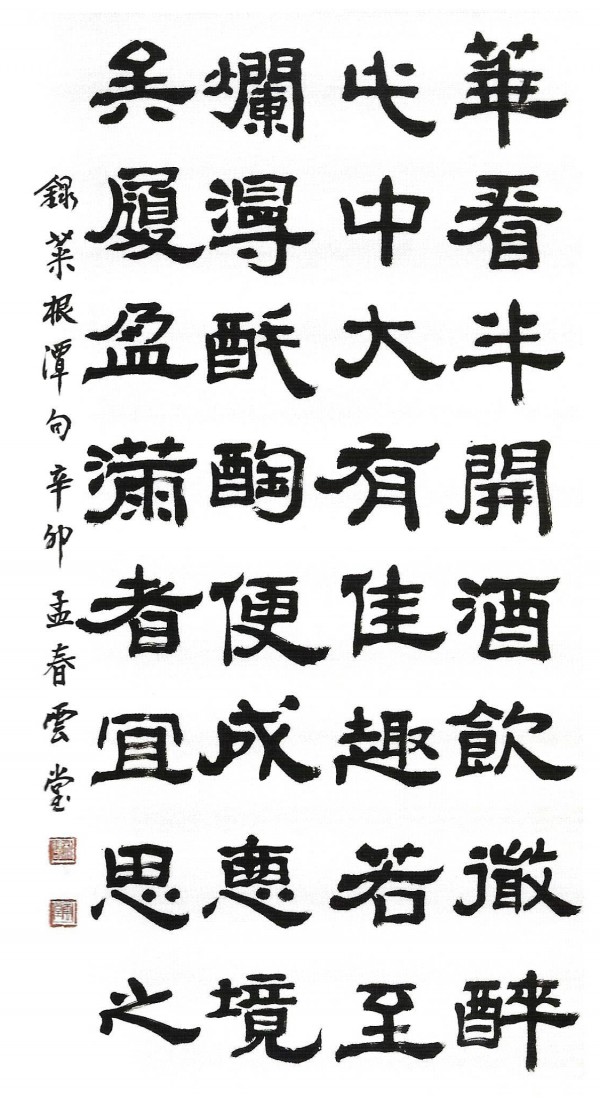 華看半開酒飲微醉
此中大有佳趣若至
爛漫酕醄便成惡境
矣履盈滿者宜思之
錄菜根潭句辛卯孟春雲堂